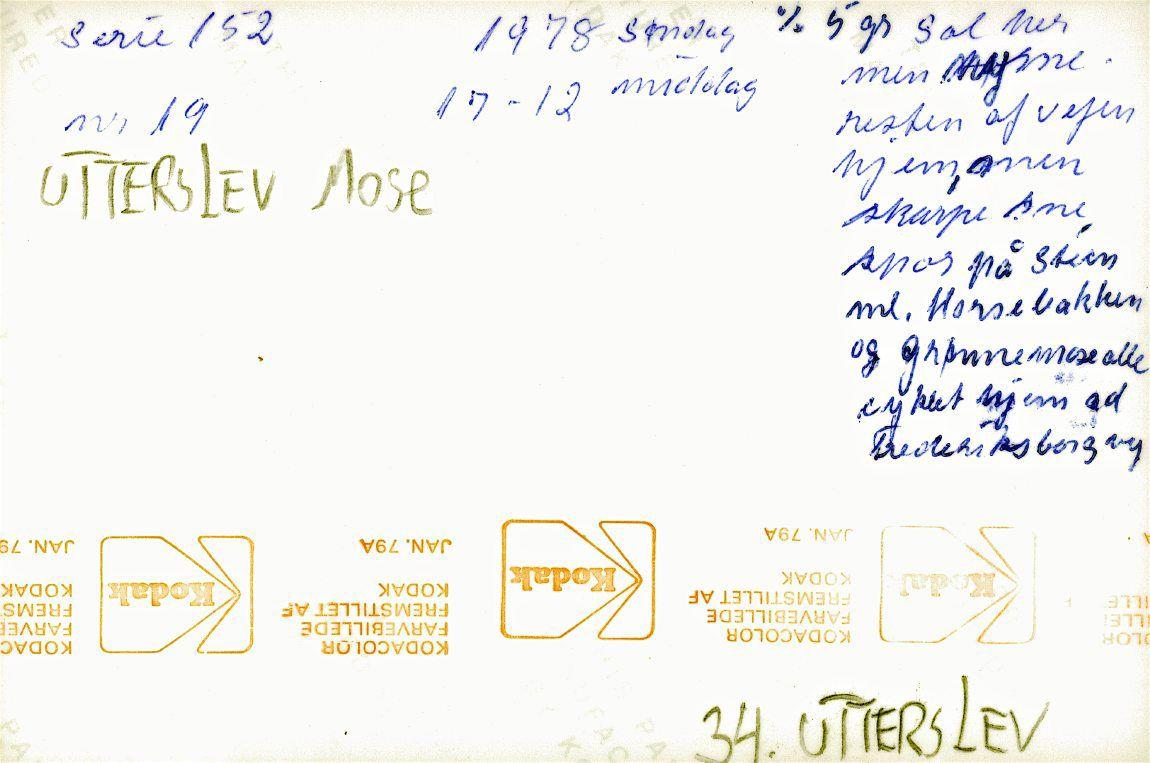 Serie 152
nr 19
UTTERSLEV Mose
1978 Søndag
17-12 middag
% 5 gr Sol her
men sne
resten af vejen
hjem, men
skarpe sne
spor på stien
ml. Horsebakken
og Grønnemose alle
cyklet hjem ad
Frederiksborgvej
JAN. 79A
KODAK
FREMSTILLET AF
FARVEBILLEDE
KODACOLOR
Kodak
JAN. 79A
KODAK
FREMSTILLET AF
FARVEBILLEDE
KODACOLOR
Kodak
JAN. 79A
KODAK
FREMSTILLET AF
FARVEBILLEDE
KODACOLOR
Kodak
34. UTTERSLEV